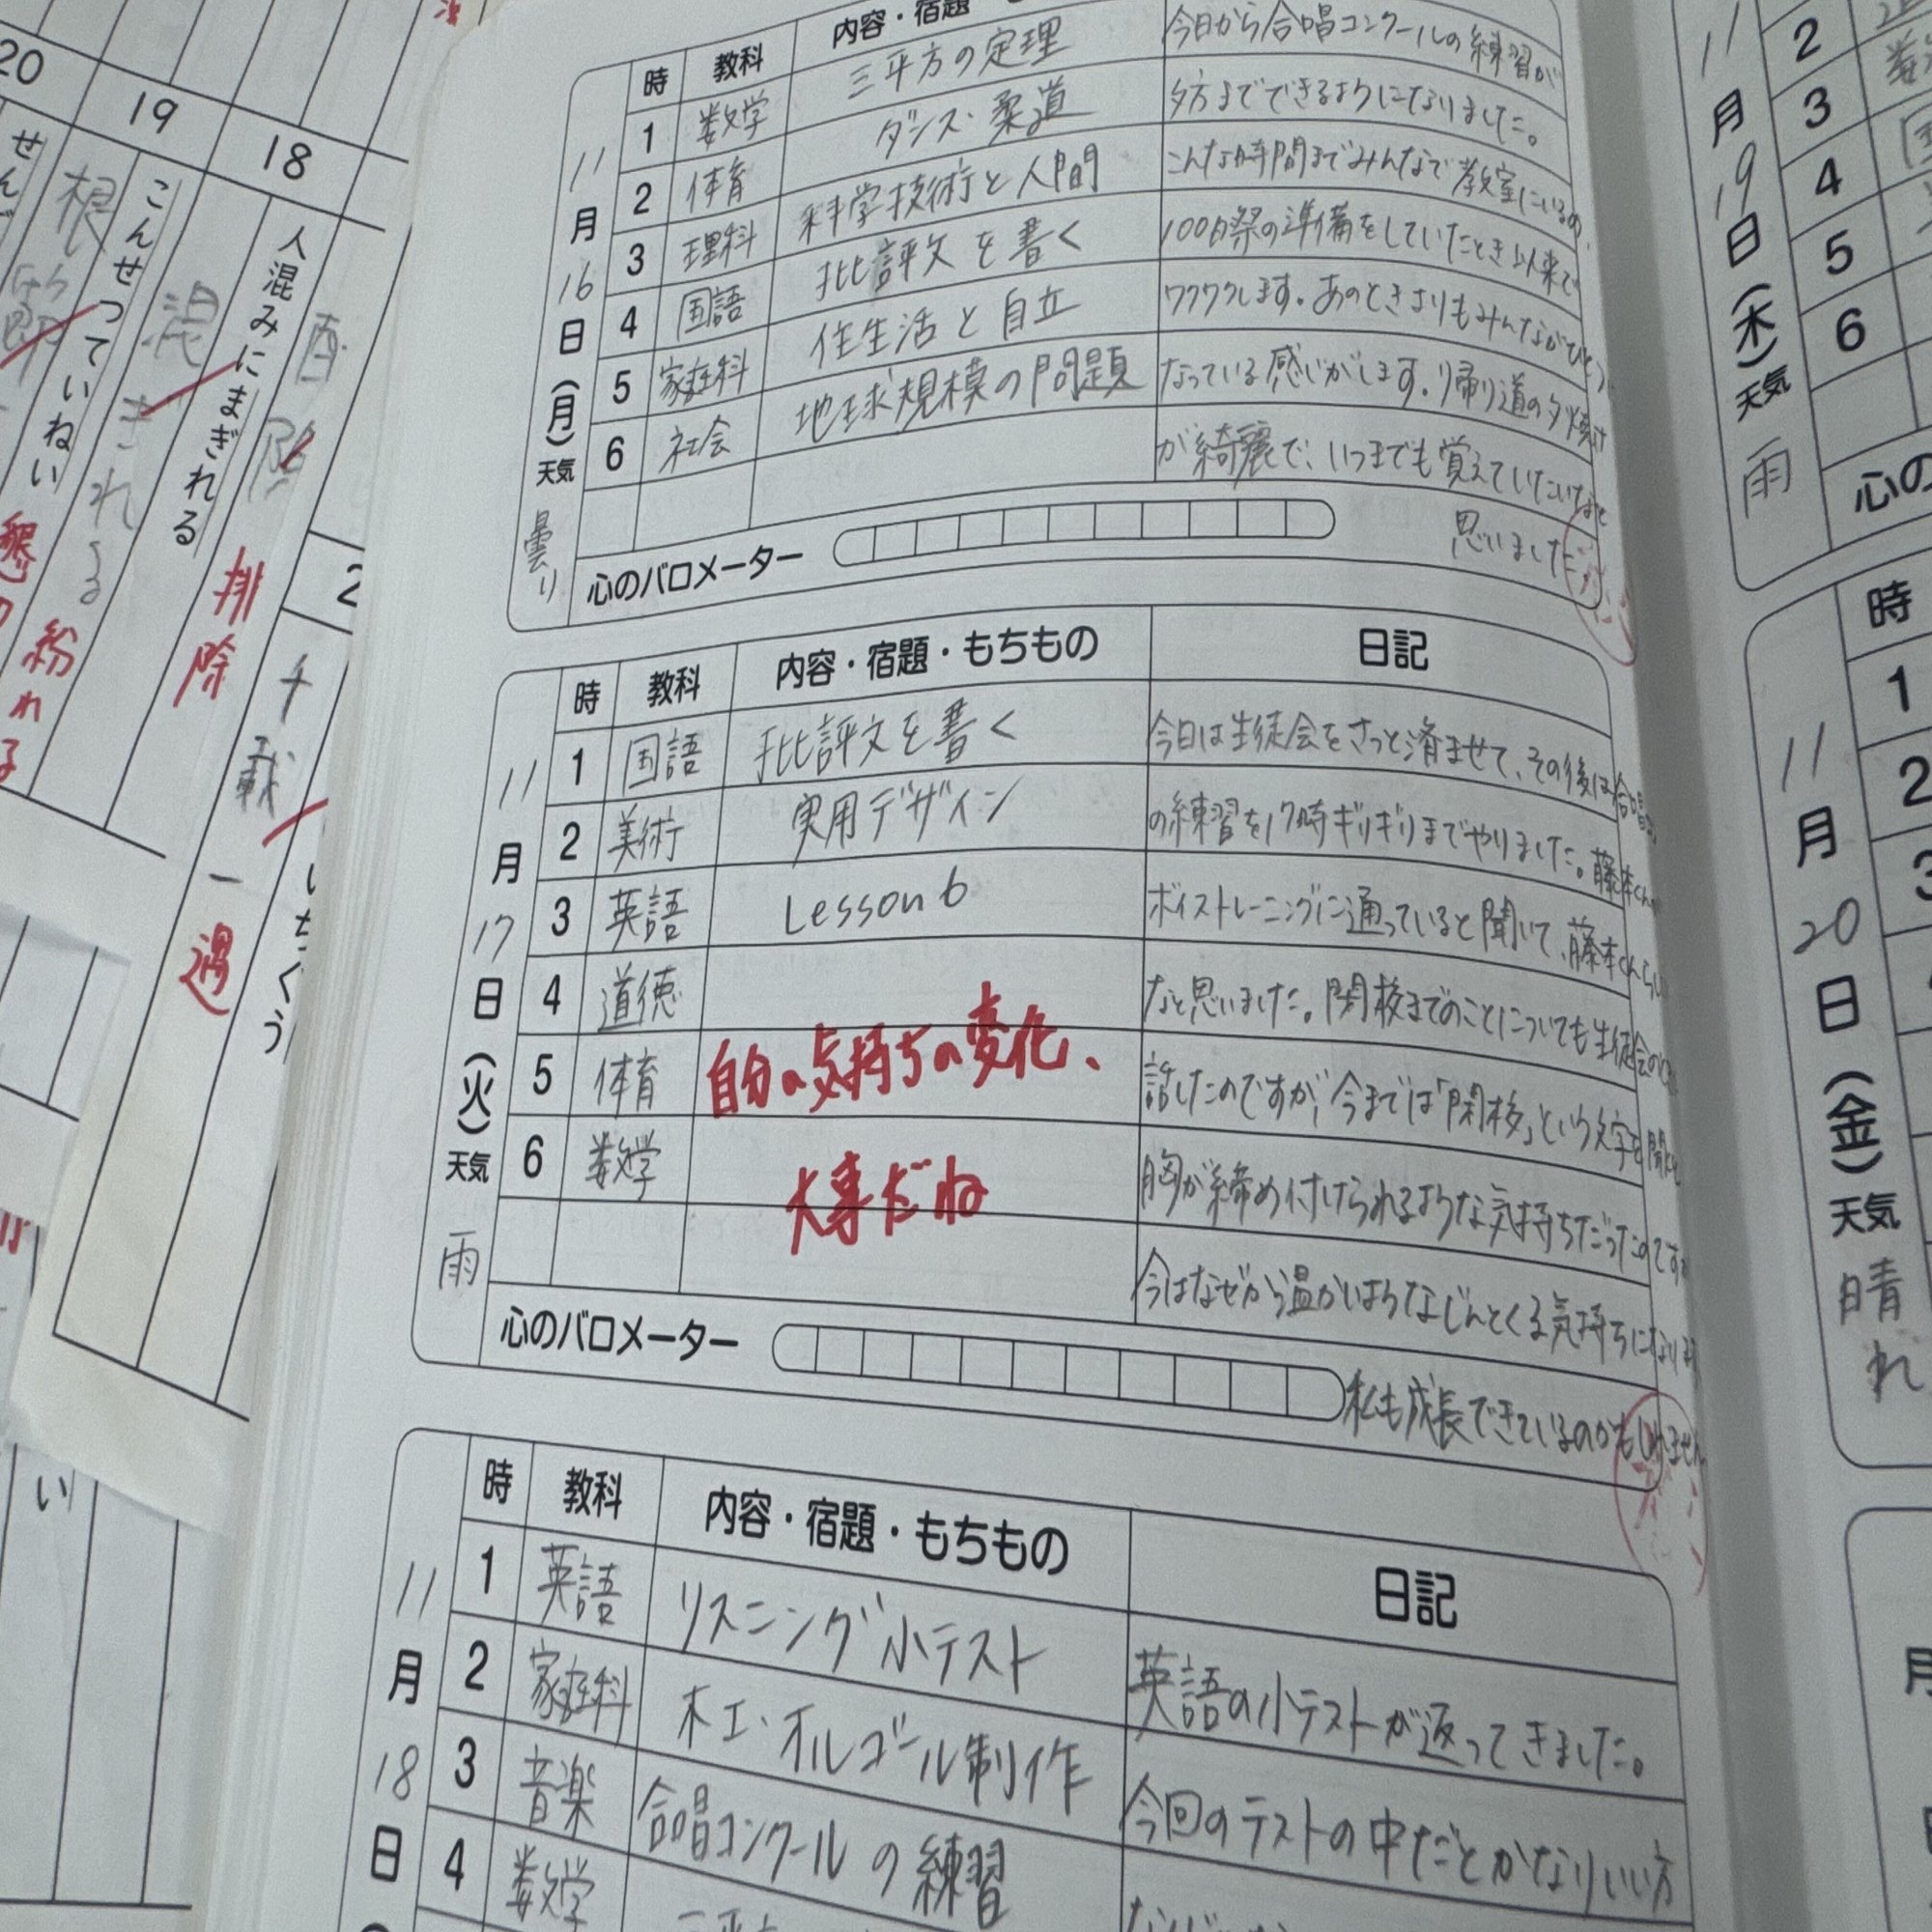 20
19
18
せん
根
こんせつていねい
懇
混
ぎれる
人混みにまぎれる
紛れる
排除
2
千載
一
遇
い
時 教科 内容・宿題
11月16日(月)天気 曇り
1 数学 三平方の定理
2 体育 ダンス・柔道
3 理科 科学技術と人間
4 国語 批評文を書く
5 家庭科 住生活と自立
6 社会 地球規模の問題
心のバロメーター
今日から合唱コンクールの練習が
夕方までできるようになりました。
こんな時間までみんなで教室にいるの
100日祭の準備をしていたとき以来で
ワクワクします。あのときよりもみんながひとつ
なっている感じがします。帰り道の夕焼け
が綺麗で、いつまでも覚えていたいなと
思いました
時 教科 内容・宿題・もちもの 日記
11月17日(火)天気 雨
1 国語 批評文を書く
2 美術 実用デザイン
3 英語 Lesson6
4 道徳
5 体育
6 数学
自分の気持ちの変化、
大事だね
心のバロメーター
今日は生徒会をさっと済ませて、その後は合唱
の練習を17時ギリギリまでやりました。藤本くん
ボイストレーニングに通っていると聞いて、藤本くんらしい
なと思いました。閉校までのことについても生徒会の
話したのですが、今までは「閉校」という文字を聞
胸が締め付けられるような気持ちだったのです
今はなぜか温かいようなじんとくる気持ちになりま
私も成長できているのかもしれません
時 教科 内容・宿題・もちもの 日記
11月18日
1 英語 リスニング小テスト
2 家庭科 木工・オルゴール制作
3 音楽 合唱コンクールの練習
4 数学
英語の小テストが返ってきました。
今回のテストの中だとかなりいい方
11月19日(木)天気 雨
2
3
4
5
6
心の
時
11月20日(金)天気 晴れ
1
2
3
月